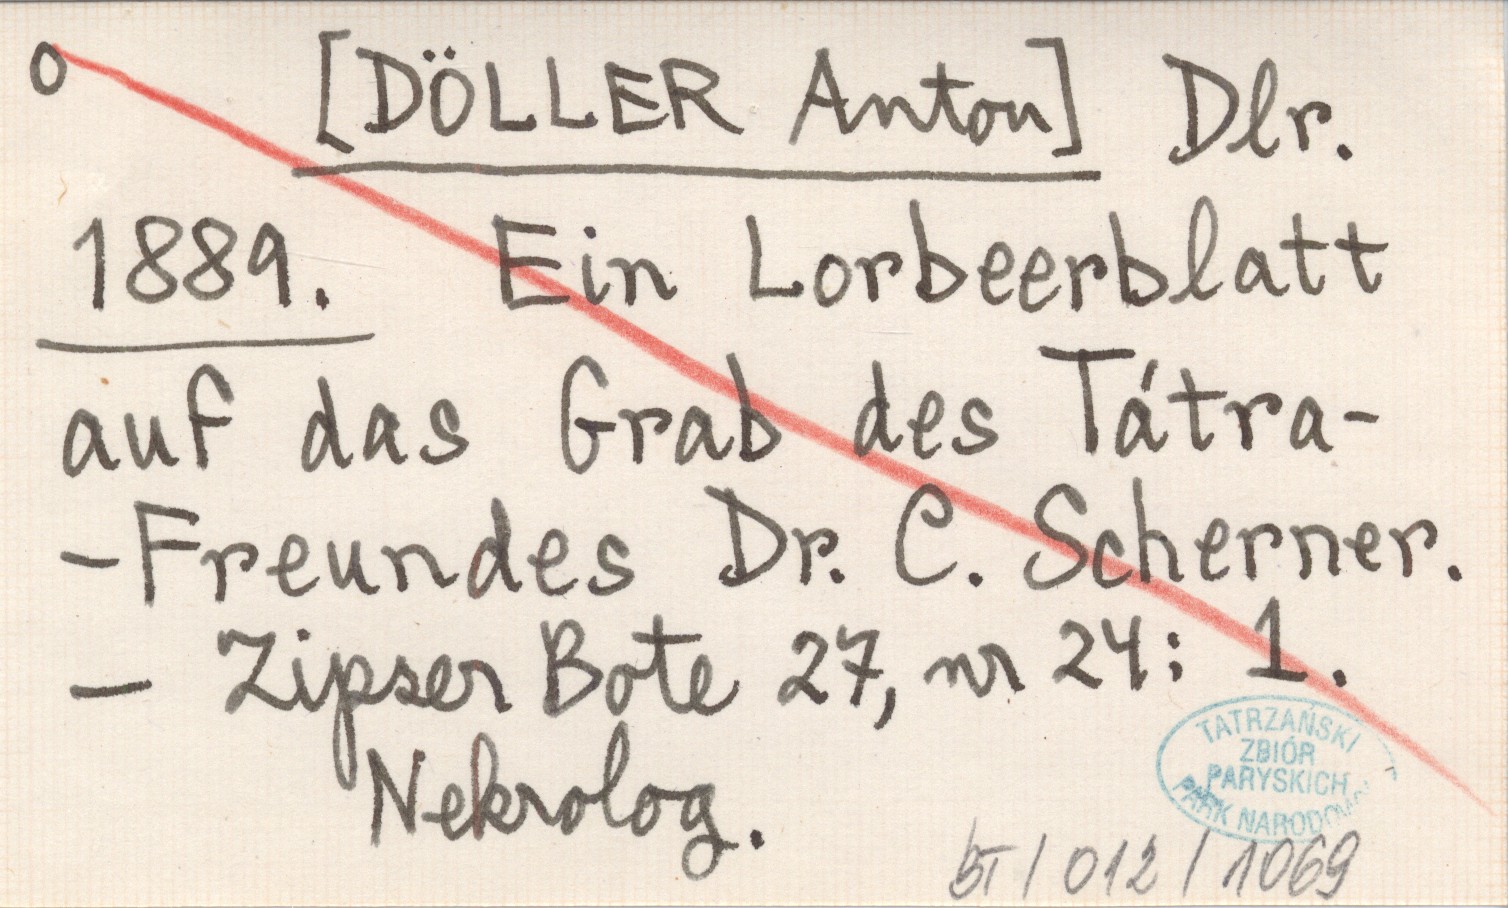 o [DÖLLER Anton] Dlr.
1889. Ein Lorbeerblatt
auf das Grab des Tátra-
-Freundes Dr. C. Scherner.
— Zipser Bote 27, nr 24: 1.
Nekrolog.
TATRZAŃSKI
ZBIÓR
PARYSKICH
PARK NARODOWY
BT/012/1069